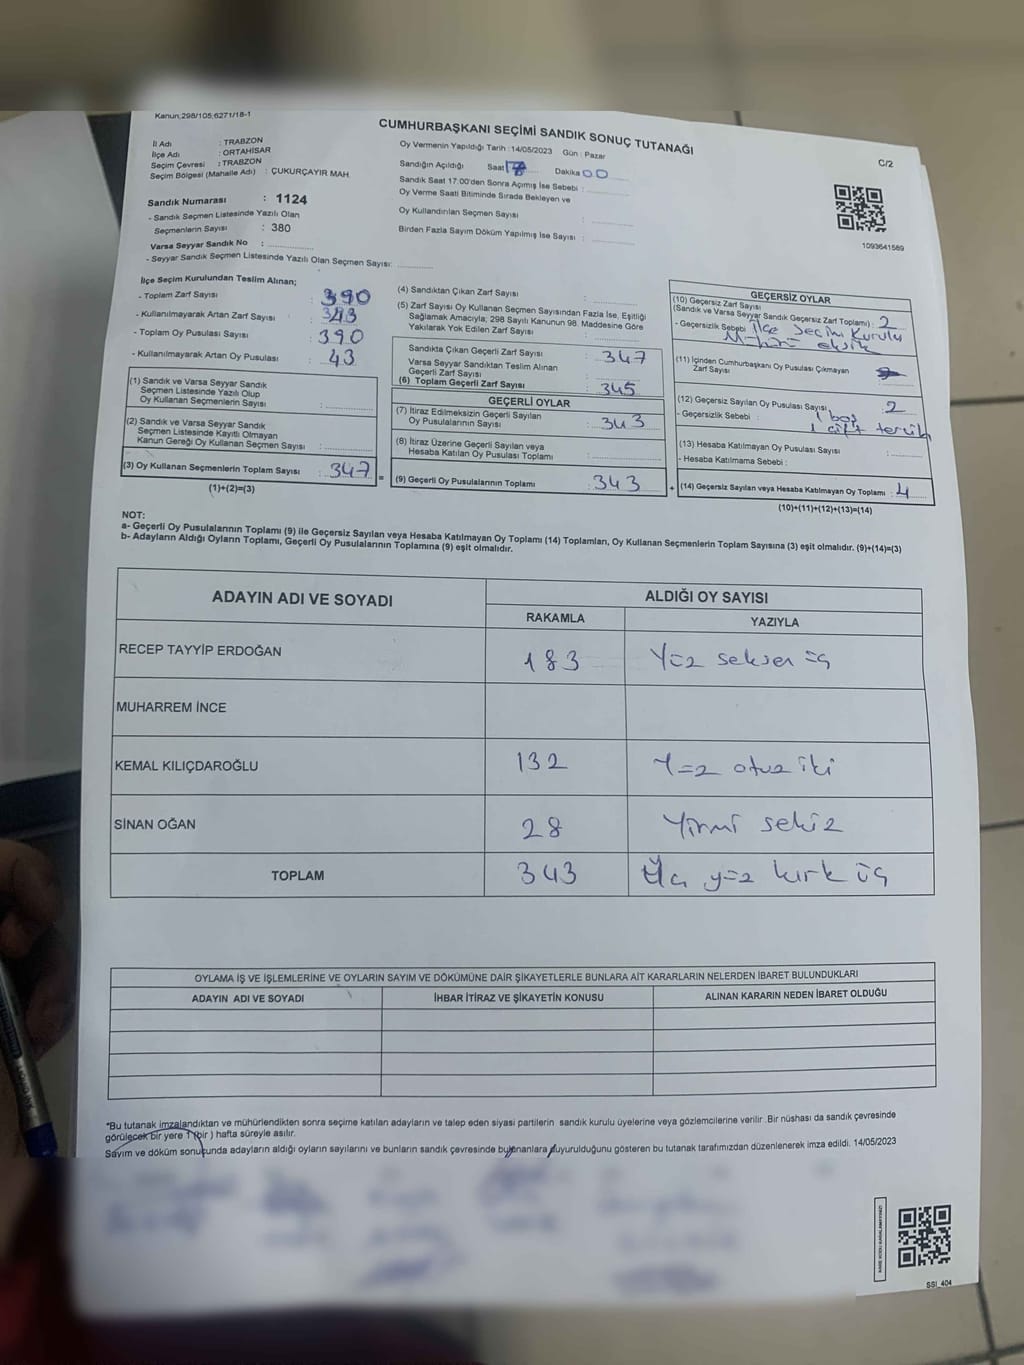 Kanun;298/105;6271/18-1
CUMHURBAŞKANI SEÇİMİ SANDIK SONUÇ TUTANAĞI
C/2
İl Adı : TRABZON
İlçe Adı : ORTAHİSAR
Seçim Çevresi : TRABZON
Seçim Bölgesi (Mahalle Adı) : ÇUKURÇAYIR MAH.
Oy Vermenin Yapıldığı Tarih :14/05/2023 Gün : Pazar
Sandığın Açıldığı Saat Dakika 00
Sandık Saat 17:00'den Sonra Açımış İse Sebebi :
Oy Verme Saati Bitiminde Sırada Bekleyen ve
Oy Kullandırılan Seçmen Sayısı :
Birden Fazla Sayım Döküm Yapılmış İse Sayısı :
1093641569
Sandık Numarası : 1124
- Sandık Seçmen Listesinde Yazılı Olan
Seçmenlerin Sayısı : 380
Varsa Seyyar Sandık No :
- Seyyar Sandık Seçmen Listesinde Yazılı Olan Seçmen Sayısı:
İlçe Seçim Kurulundan Teslim Alınan;
- Toplam Zarf Sayısı : 390
- Kullanılmayarak Artan Zarf Sayısı :
- Toplam Oy Pusulası Sayısı : 390
- Kullanılmayarak Artan Oy Pusulası : 43
(1) Sandık ve Varsa Seyyar Sandık
Seçmen Listesinde Yazılı Olup
Oy Kullanan Seçmenlerin Sayısı :
(2) Sandık ve Varsa Seyyar Sandık
Seçmen Listesinde Kayıtlı Olmayan
Kanun Gereği Oy Kullanan Seçmen Sayısı :
(3) Oy Kullanan Seçmenlerin Toplam Sayısı : 347
(1)+(2)=(3)
=
(4) Sandıktan Çıkan Zarf Sayısı :
(5) Zarf Sayısı Oy Kullanan Seçmen Sayısından Fazla İse, Eşitliği
Sağlamak Amacıyla; 298 Sayılı Kanunun 98. Maddesine Göre
Yakılarak Yok Edilen Zarf Sayısı :
Sandıkta Çıkan Geçerli Zarf Sayısı : 347
Varsa Seyyar Sandıktan Teslim Alınan
Geçerli Zarf Sayısı :
(6) Toplam Geçerli Zarf Sayısı : 345
GEÇERLİ OYLAR
(7) İtiraz Edilmeksizin Geçerli Sayılan
Oy Pusulalarının Sayısı : 343
(8) İtiraz Üzerine Geçerli Sayılan veya
Hesaba Katılan Oy Pusulası Toplamı :
(9) Geçerli Oy Pusulalarının Toplamı : 343
+
GEÇERSİZ OYLAR
(10) Geçersiz Zarf Sayısı
(Sandık ve Varsa Seyyar Sandık Geçersiz Zarf Toplamı) : 2
- Geçersizlik Sebebi : İlçe Seçim Kurulu
Mührü eksik
(11) İçinden Cumhurbaşkanı Oy Pusulası Çıkmayan
Zarf Sayısı
(12) Geçersiz Sayılan Oy Pusulası Sayısı : 2
- Geçersizlik Sebebi : 1 boş
1 çift tercih
(13) Hesaba Katılmayan Oy Pusulası Sayısı :
- Hesaba Katılmama Sebebi :
(14) Geçersiz Sayılan veya Hesaba Katılmayan Oy Toplamı : 4
(10)+(11)+(12)+(13)=(14)
NOT:
a- Geçerli Oy Pusulalarının Toplamı (9) ile Geçersiz Sayılan veya Hesaba Katılmayan Oy Toplamı (14) Toplamları, Oy Kullanan Seçmenlerin Toplam Sayısına (3) eşit olmalıdır. (9)+(14)=(3)
b- Adayların Aldığı Oyların Toplamı, Geçerli Oy Pusulalarının Toplamına (9) eşit olmalıdır.
ADAYIN ADI VE SOYADI
ALDIĞI OY SAYISI
RAKAMLA YAZIYLA
RECEP TAYYİP ERDOĞAN 183 Yüz seksen üç
MUHARREM İNCE
KEMAL KILIÇDAROĞLU 132 Yüz otuz iki
SİNAN OĞAN 28 Yirmi sekiz
TOPLAM 343 Üç yüz kırk üç
OYLAMA İŞ VE İŞLEMLERİNE VE OYLARIN SAYIM VE DÖKÜMÜNE DAİR ŞİKAYETLERLE BUNLARA AİT KARARLARIN NELERDEN İBARET BULUNDUKLARI
ADAYIN ADI VE SOYADI İHBAR İTİRAZ VE ŞİKAYETİN KONUSU ALINAN KARARIN NEDEN İBARET OLDUĞU
*Bu tutanak imzalandıktan ve mühürlendikten sonra seçime katılan adayların ve talep eden siyasi partilerin sandık kurulu üyelerine veya gözlemcilerine verilir. Bir nüshası da sandık çevresinde
görülecek bir yere 1 (bir ) hafta süreyle asılır.
Sayım ve döküm sonucunda adayların aldığı oyların sayılarını ve bunların sandık çevresinde bulunanlara duyurulduğunu gösteren bu tutanak tarafımızdan düzenlenerek imza edildi. 14/05/2023
SSI_404